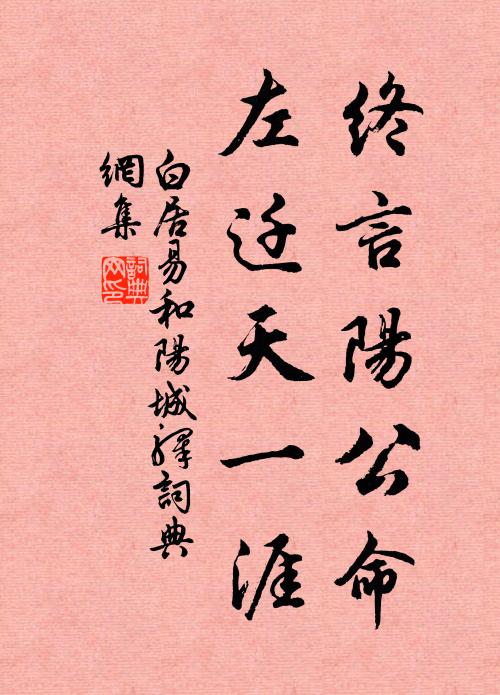 終言陽公命
左迁天一涯
白居易和陽城驛詞典
網集
詞典
网印